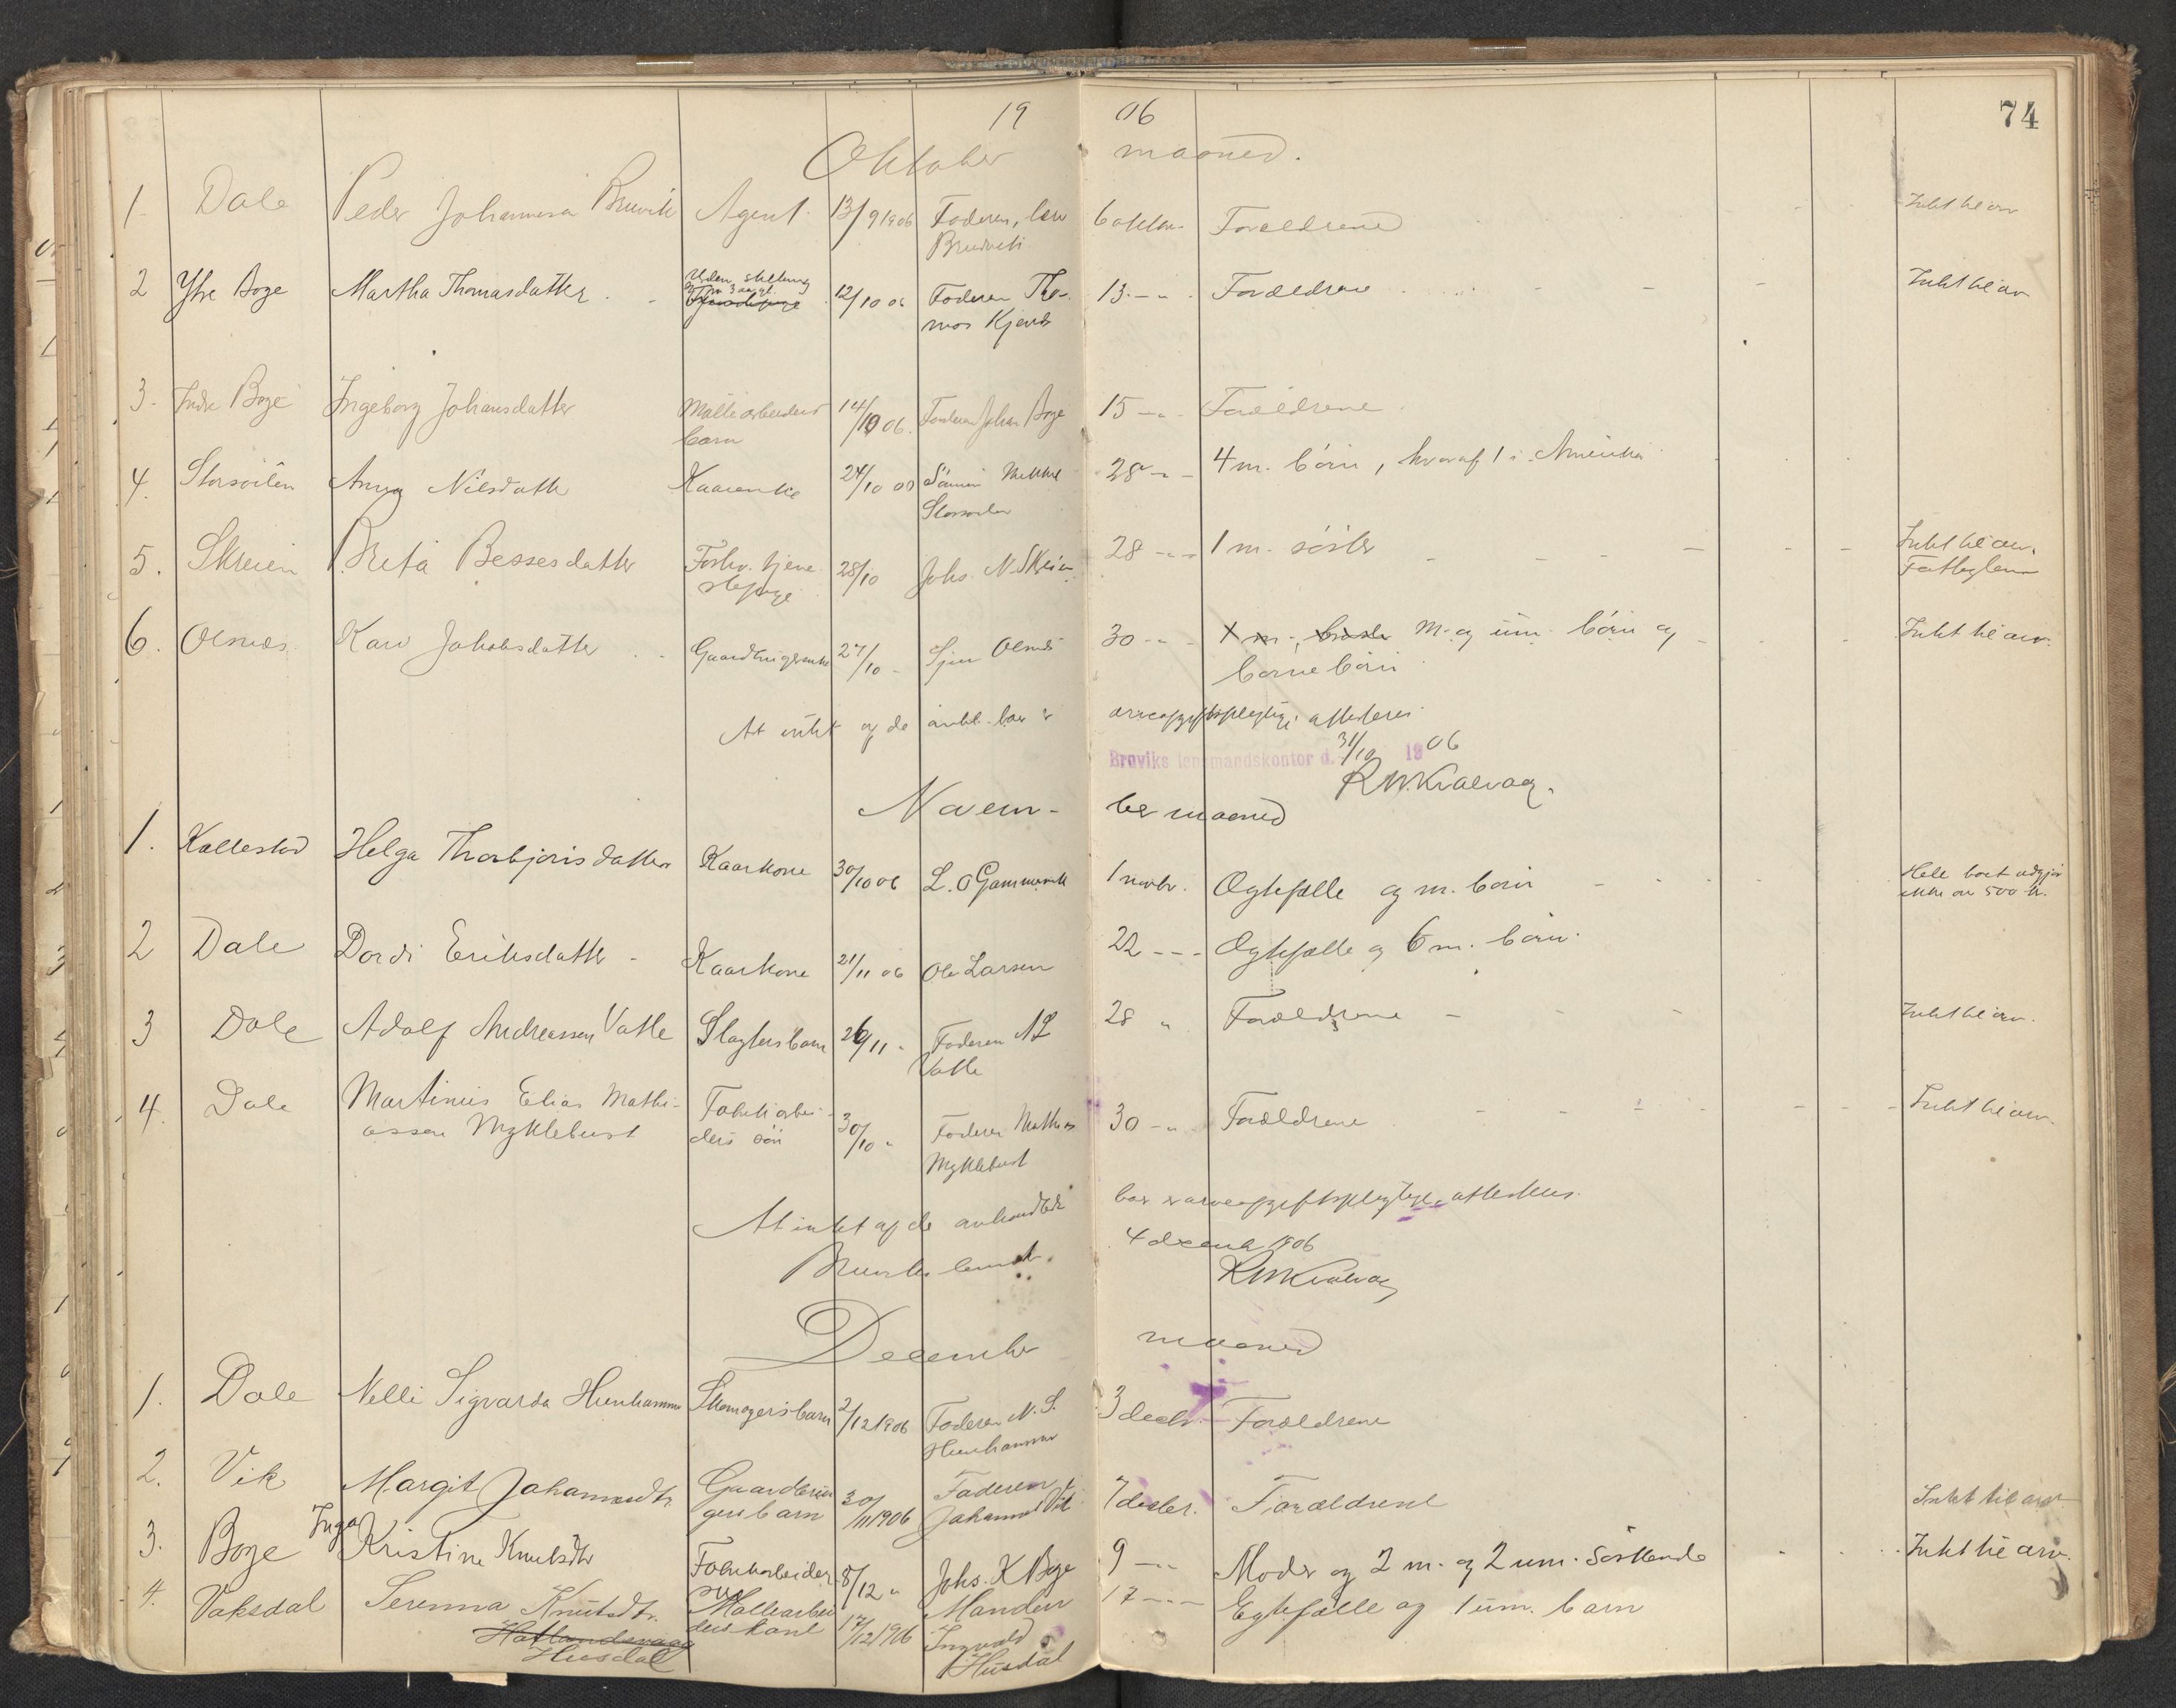 19 06
74
Oktober maaned.
1. Dale Peder Johannesen Bruvik Agent. 13/9 1906 Faderen, Bruvik 6 oktbr. Forældrene Intet til arv
2 Ytre Boge Martha Thomasdatter Uden stilling 12/10 06 Faderen Tho-
mas 13 - " - Forældrene Intet til arv
3. Indre Boge Ingeborg Johansdatter Mølle arbeiders
barn 14/10 06. Faderen Johan Boge 15 - " - Forældrene
4. Storsöilen Anna Nilsdatter Kaarenke 24/10 06 Sönnen Mikkel
Storsöilen 28 - " - 4 m. börn, hvoraf 1 i Amerika
5. Skreien Brita Bessesdatter Forhv. tjene-
stepige 28/10 Johs. N. Skreien 28 - " - 1 m. söster Intet til arv.
Fattiglem
6. Olsnes Kari Jakobsdatter Gaardbrugerenke 27/10 - Sjur Olsnes 30 - " - 1 m. broder M. og um. börn og
börnebörn Intet til arv.
At intet af de anhl. boer er arveafgiftspligtige attesteres
Bruviks lensmandskontor d. 31/10 1906
R W Kvalvaag.
Novem- ber maaned
1. Kallestad Helga Thorbjörnsdatter Kaarkone 30/10 06 L. O Gammersvik 1 novbr. Ægtefælle og m. börn Hele boet udgjör
ikke over 500 kr.
2 Dale Dordi Eriksdatter - Kaarkone 21/11 06 Ole Larsen 22 - - - Ægtefælle og 6 m. börn
3 Dale Adolf Andreassen Vatle Slagters barn 26/11 - Faderen A L
Vatle 28 " Forældrene - Intet til arv.
4. Dale Martinus Elias Mathi-
assen Myklebust Fabrikarbei-
ders sön 30/10 " Faderen Mathias
Myklebust 30 - " - Forældrene Intet til arv.
At intet af de anhandlede boer er arveafgiftspligtige, attesteres.
Bruviks lensmd. 4 decemb 1906
R W Kvalvaag
December maaned
1. Dale Nelli Sigvarda Hunhammer Skomagers barn 2/12 1906 Faderen N. S.
Hunhammer 3 decbr. Forældrene
2. Vik Margit Johannesdtr. Gaardbru-
gers barn 30/11 1906 Faderen
Johannes Vik 7 decbr. Forældrene Intet til arv
3. Boge Inga Kristine Knutsdtr Fabrikarbeider-
ske 8/12 " Johs. K Boge 9 - " - Moder og 2 m. og 2 um. Söskende Intet til arv.
4. Vaksdal Serenna Knutsdtr.
Hatlandsvaag
Husdal Møllearbei-
ders kone 17/12 1906 Manden
Ingvald
Husdal 17 - - - Egtefælle og 1 um. barn